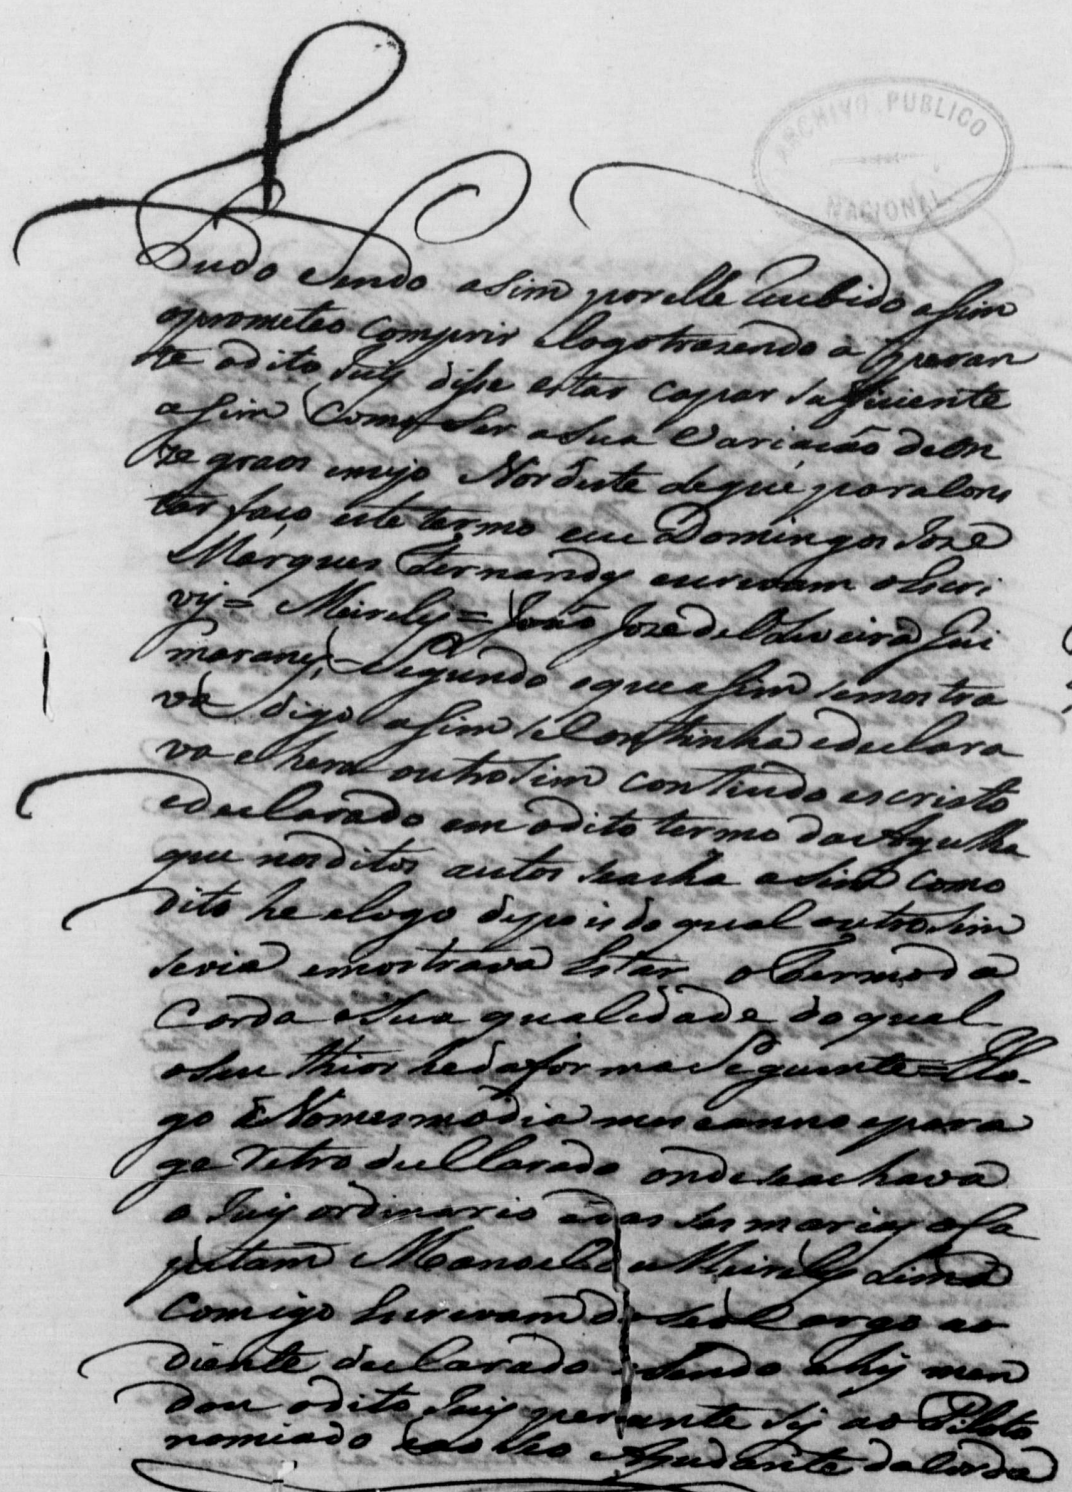 ARCHIVO PUBLICO
NACIONAL
Tudo e sendo asim por elle recebido asim
oprometeo comprir e logo trasendo a peran
te o dito Juiz dise estar capas suficiente
asim como ser a sua Variacaõ de on
ze graos e meyo Nordeste de que para cons
tar faço este termo eu Domingos José
Marques Fernandes escrivam o escri
vy = Meireles = João José de Oliveira Gui
marans = Segundo o que asim se mostra
va digo asim se Continha e declara
va e hera outro sim contiudo escrito
e declarado em o dito termo da Agulha
que nos ditos autos se acha asim como
dito he e logo depois do qual outro sim
se via e mostrava Estar o termo da
Corda e Sua qualidade do qual
o seu thior he da forma Seguinte = E lo-
go No mesmo dia mes e anno e para
ge Retro decllarada onde se achava
o Juiz ordinario e das sesmarias o Ca
pitam Manoel de Meireles Lima
Comigo Escrivam do seo Cargo ao
diente declarado e sendo ahy man
dou o dito Juiz perante sy ao Piloto
nomiado e ao seo Ajudante da Corda